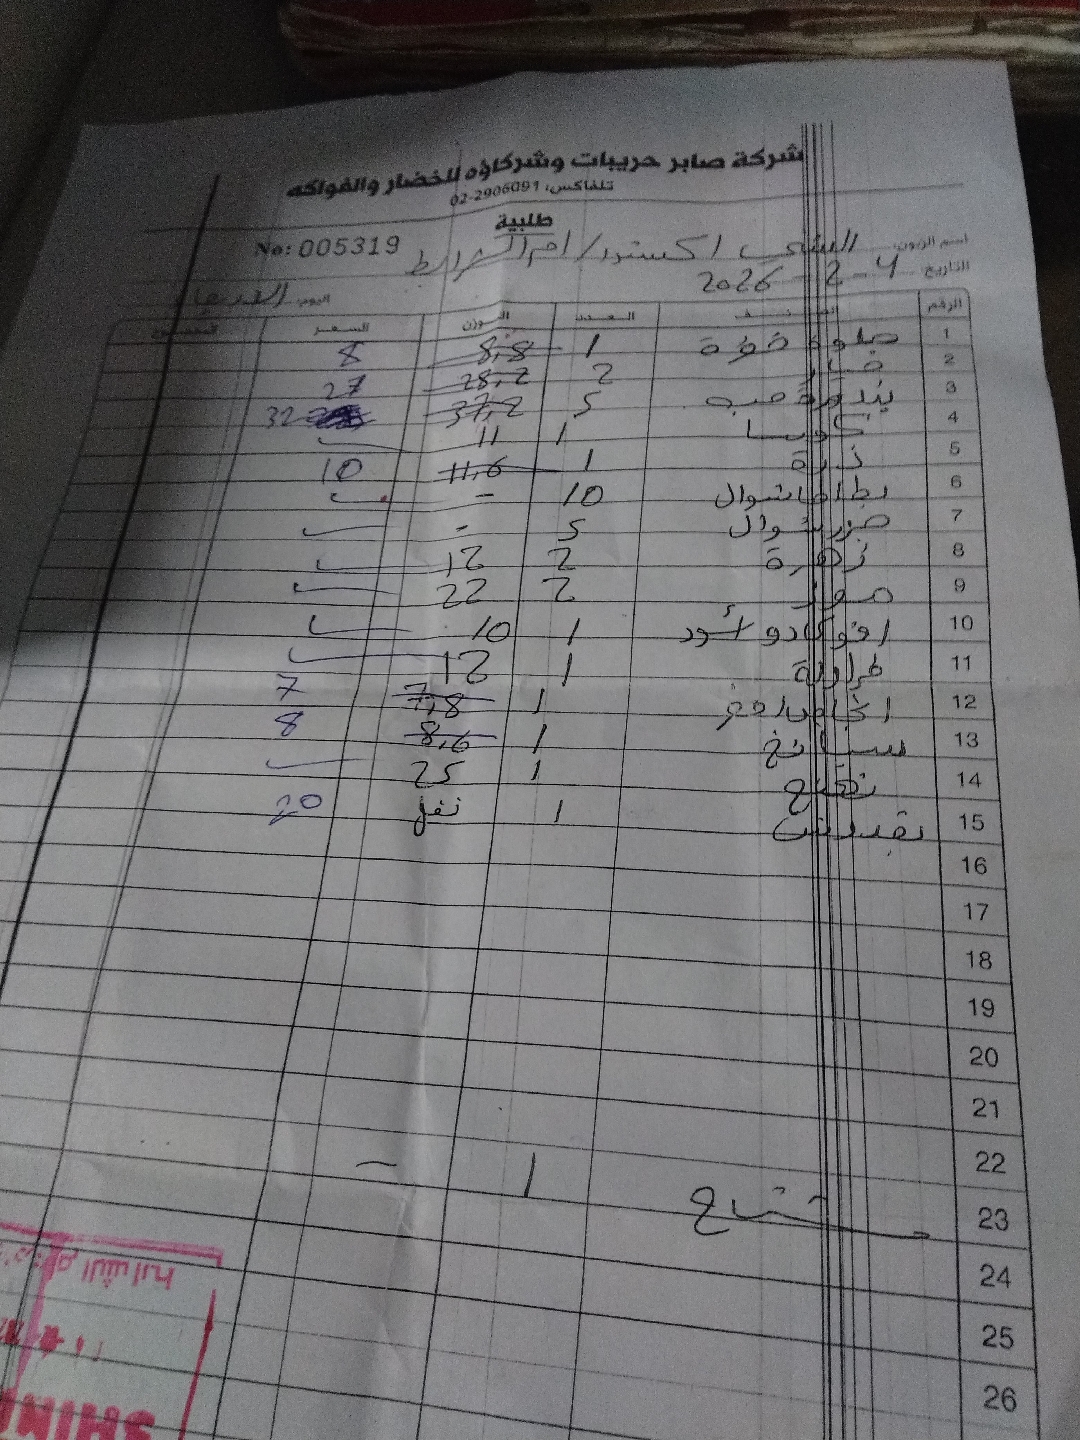 شركة صابر حريبات وشركاؤه للخضار والفواكه
تلفاكس: 02-2906091
طلبية
No: 005319
اسم الزبون: الشني اكسترا / ام الشرايط
التاريخ 4-2-2026
اليوم: الاربعاء
الرقم الصنف العدد الوزن السعر
1 1 8,8 8
2 خيار 2 28,2 27
3 بندورة حب 5 37,2 32
4 كوسا 1 11
5 ذرة 1 11,6 10
6 بطاطا شوال 10 -
7 جزر شوال 5 -
8 زهرة 2 12
9 موز 2 22
10 افوكادو أسود 1 10
11 1 12
12 1 7,8 7
13 سبانخ 1 8,6 8
14 تفاح 1 25
15 بقدونس 1 20
16
17
18
19
20
21
22
23 1 -
24
25
26
ام الشرايط